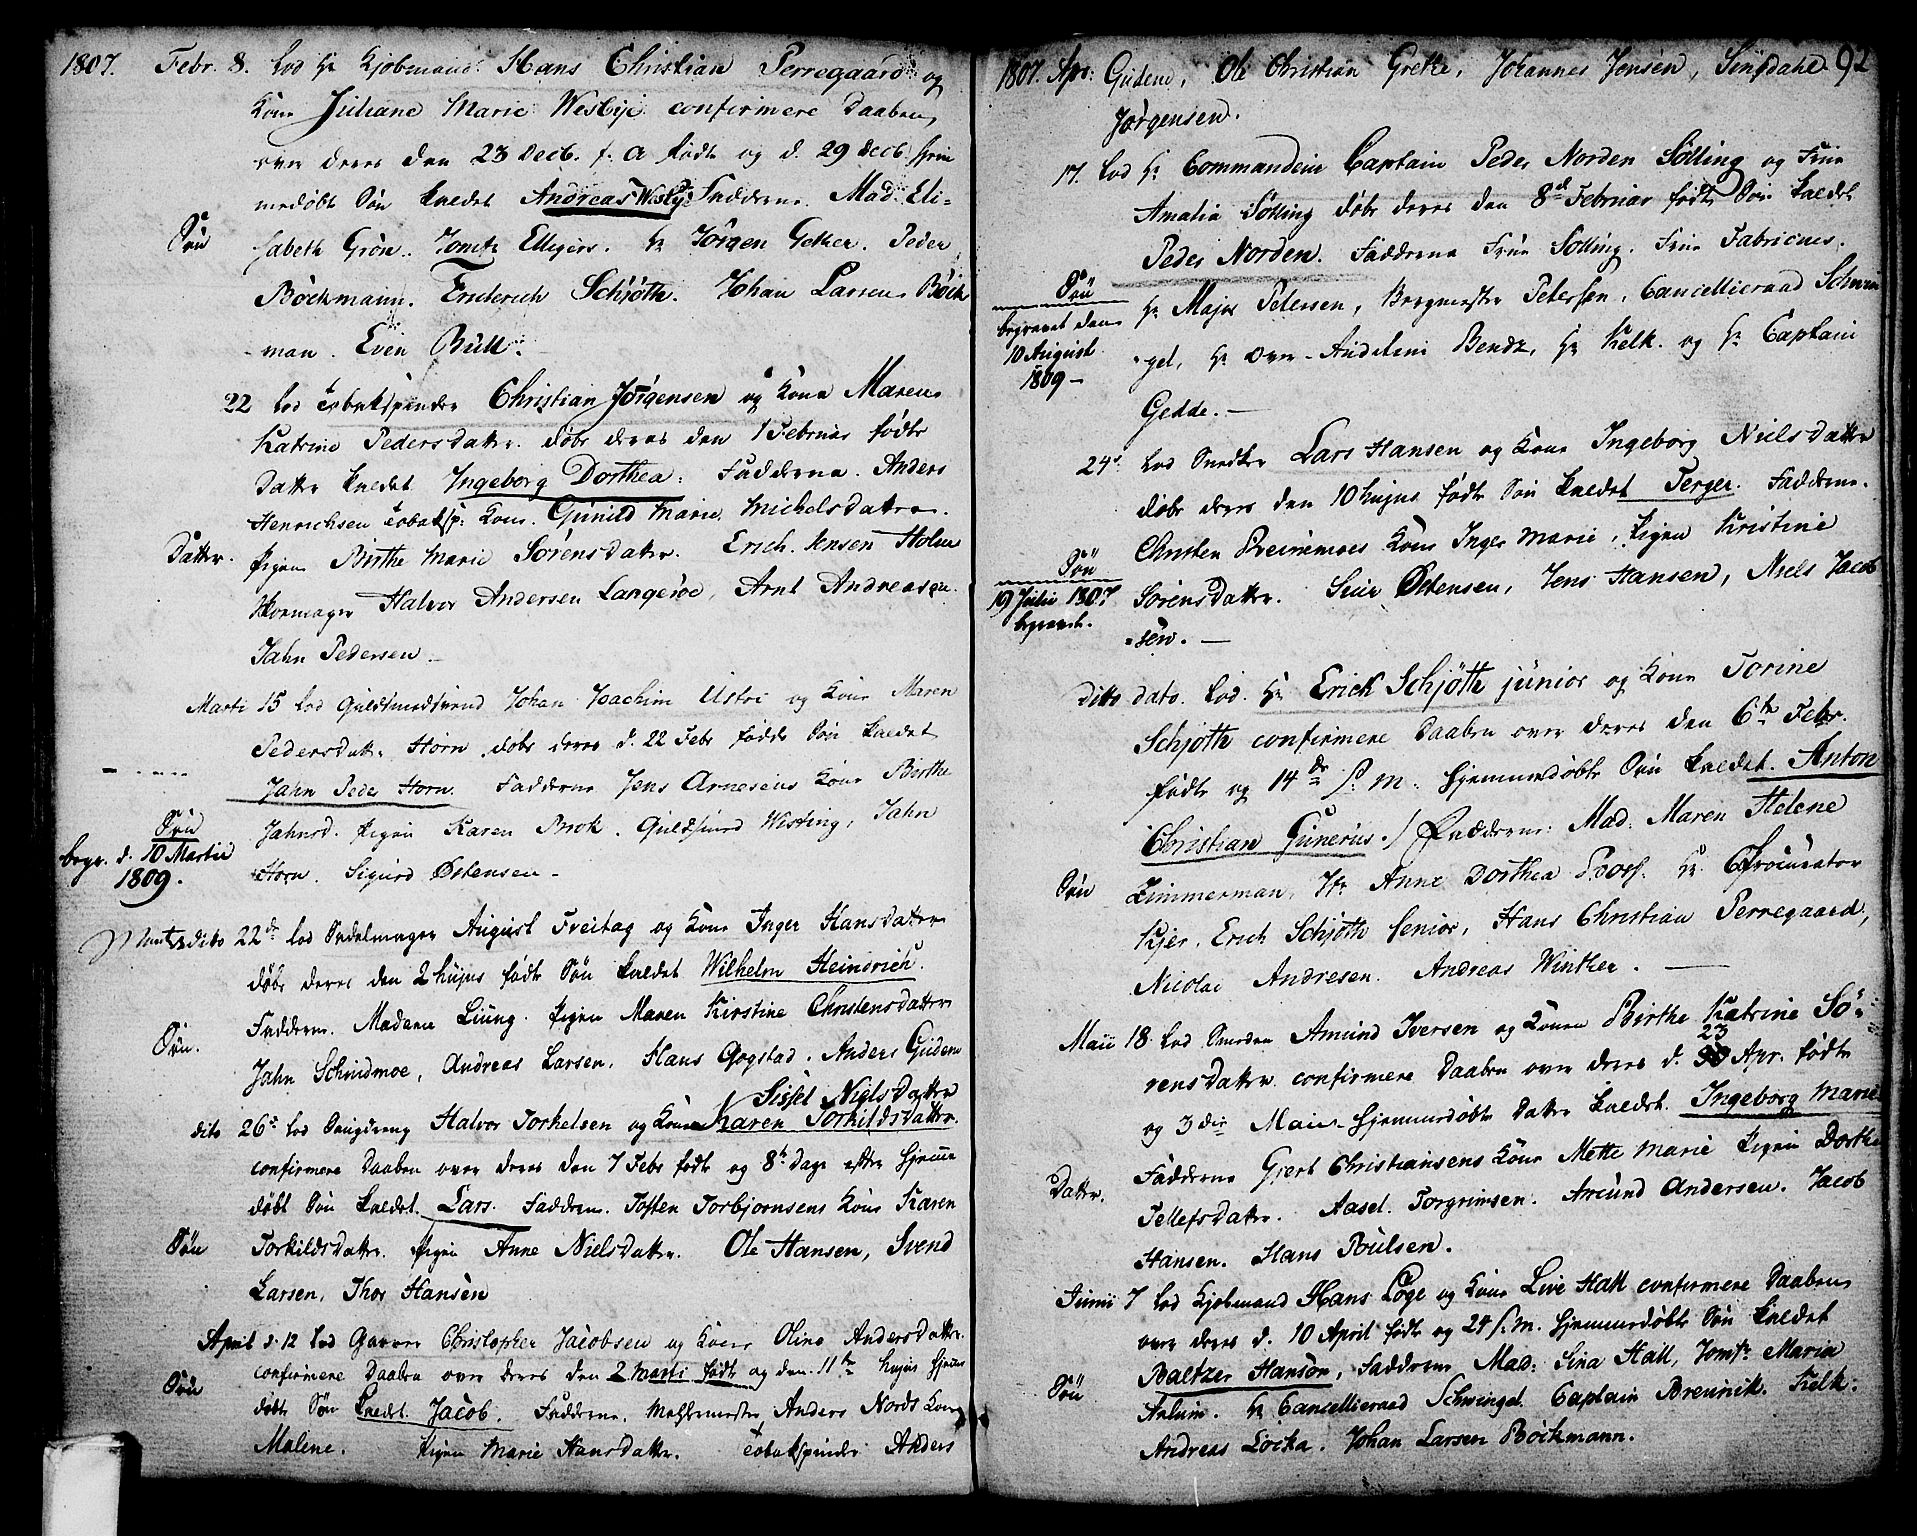 1807. Febr. 8. lod Hr Kjøbmand Hans Christian Perregaard og
Kone Juliane Marie Wesbye confirmere Daaben,
over deres den 23 Decb. f. a fødte og d. 29 Decb. hjem
medøbte Søn kaldet Andreas Wesbye Faddere. Mad. Eli-
Søn
sabeth Grön. Jomfr Ellgers. Hr Jörgen Gether. Peder
Böckmann. Friderich Schjöth. Johan Larsen Böck
man. Even Bull.
22 lod Tobakspinder Christian Jörgensen og Kone Maren
Katrine Pedersdatter døbe deres den 1 Februar fødte
Datter kaldet Ingeborg Dorthea. Fadderne. Anders
Henrichsen Tobaksp: Kone. Gunild Marie Michelsdatter.
Datter.
Pigen Birthe Marie Sörensdatter. Erich Jensen Holm
Skomager Halvor Andersen Langeröe, Arnt Andreasen
Jahn Pedersen
Marti 15 lod Guldsmedsvend Johan Joachim Ustri og Kone Maren
Pedersdatter Horn døbe deres d. 22 Febr fødde Søn kaldet
Jahn Peder Horn. Fadderne Jens Arnesens Kone Birthe
Søn
begr. d. 10 Martii
1809.
Jahnsd. Pigen Karen Brok. Guldsmed Wisting, Jahn
Horn. Sigurd Östensen.
Marts dito 22de lod Sadelmager August Freitag og Kone Inger Hansdatter
døbe deres den 2 hujus fødte Søn kaldet Wilhelm Heindrich.
Fadderne. Madame Liung. Pigen Maren Kirstine Christensdatter
Søn.
Jahn Schmidmoe, Andreas Larsen, Hans Gogstad. Anders Gudem
Sissel Nielsdatter
dito 26de lod Halvor Torkelsen og Kone Karen Torkildsdatter
confirmere Daaben over deres den 7 Febr fødte og 8te Dage efter hjemme
døbt Søn kaldet Lars. Fadderne. Tosten Torbjornsens Kone Karen
Søn
Torkildsdatter. Pigen Anne Nielsdatter. Ole Hansen, Svend
Larsen, Thor Hansen
April d. 12 lod Garver Christopher Jacobsen og Kone Oline Andersdatter
confirmere Daaben over deres den 2 Marti fødte og den 11te hujus hjemme
Søn
døbte Søn kaldet Jacob. Fadderne. Anders Nords Kone
Malene. Pigen Marie Hansdatter. Tobakspinder Anders
1807. Apr: Gudem, Ole Christian Grethe, Johannes Jensen, 92
Jörgensen.
17. lod Hr Commandeur Captain Peder Norden Sölling og Frue
Amalia Sölling døbe deres den 8de Februar fødte Søn kaldet
Peder Norden. Fadderne Frue Sölling. Frue Fabricius.
Søn
begravet den
10 August
1809
Hr Major Petersen, Borgmester Petersen, Cancellieraad Schwin
gel, Hr Over-Auditeur Bendz, Hr Kelk. og Hr Captain
Gedde.
24de lod Snedker Lars Hansen og Kone Ingeborg Nielsdatter
døbe deres den 10 hujus fødte Søn kaldet Terger. Fadderne.
Christen Preinemoes Kone Inger Marie, Pigen Kristine
Søn
19 Julii 1807
begravet.
Sörensdatter. Östensen, Jens Hansen, Niels Jacob
sen.
Ditto dato. lod. Hr Erick Schjöth junior og Kone Torine
Schjöth confirmere Daaben over deres den 6te Febr.
fødte og 14de s. m. hjemmedøbte Søn kaldet. Anton
Christian Gunerius. Fadderne: Mad. Maren Helene
Søn
Zimmerman, Jfr Anne Dorthea Roof. Hr Procurator
Kjer, Erich Schjöth Senior, Hans Christian Perregaard,
Nicolai Andresen. Andreas Winther.
Maii 18. lod Smeden Amund Iversen og Konen Birthe Katrine Sö-
23
rensdatter confirmere Daaben over deres d. Apr. fødte
og 3die Maii hjemmedøbte Datter kaldet. Ingeborg Marie
Fadderne Giert Christiansens Kone Mette Marie Pigen Dorthe
Datter.
Tellefsdatter. Aasel Torgrimsen. Amund Andersen. Jacob
Hansen. Hans Poulsen.
Junii 7 lod Kjøbmand Hans Löge og Kone Live Hall confirmere Daaben
over deres d. 10 April fødte og 24 s. m. hjemmedøbte Søn kaldet
Baltzer Hanson, Fadderne Mad: Sina Hall, Jomfr Maria
Søn
Hr Cancellieraad Schwingel. Captain Brennik. Kelk.
Andreas Locka. Johan Larsen Böckmann.